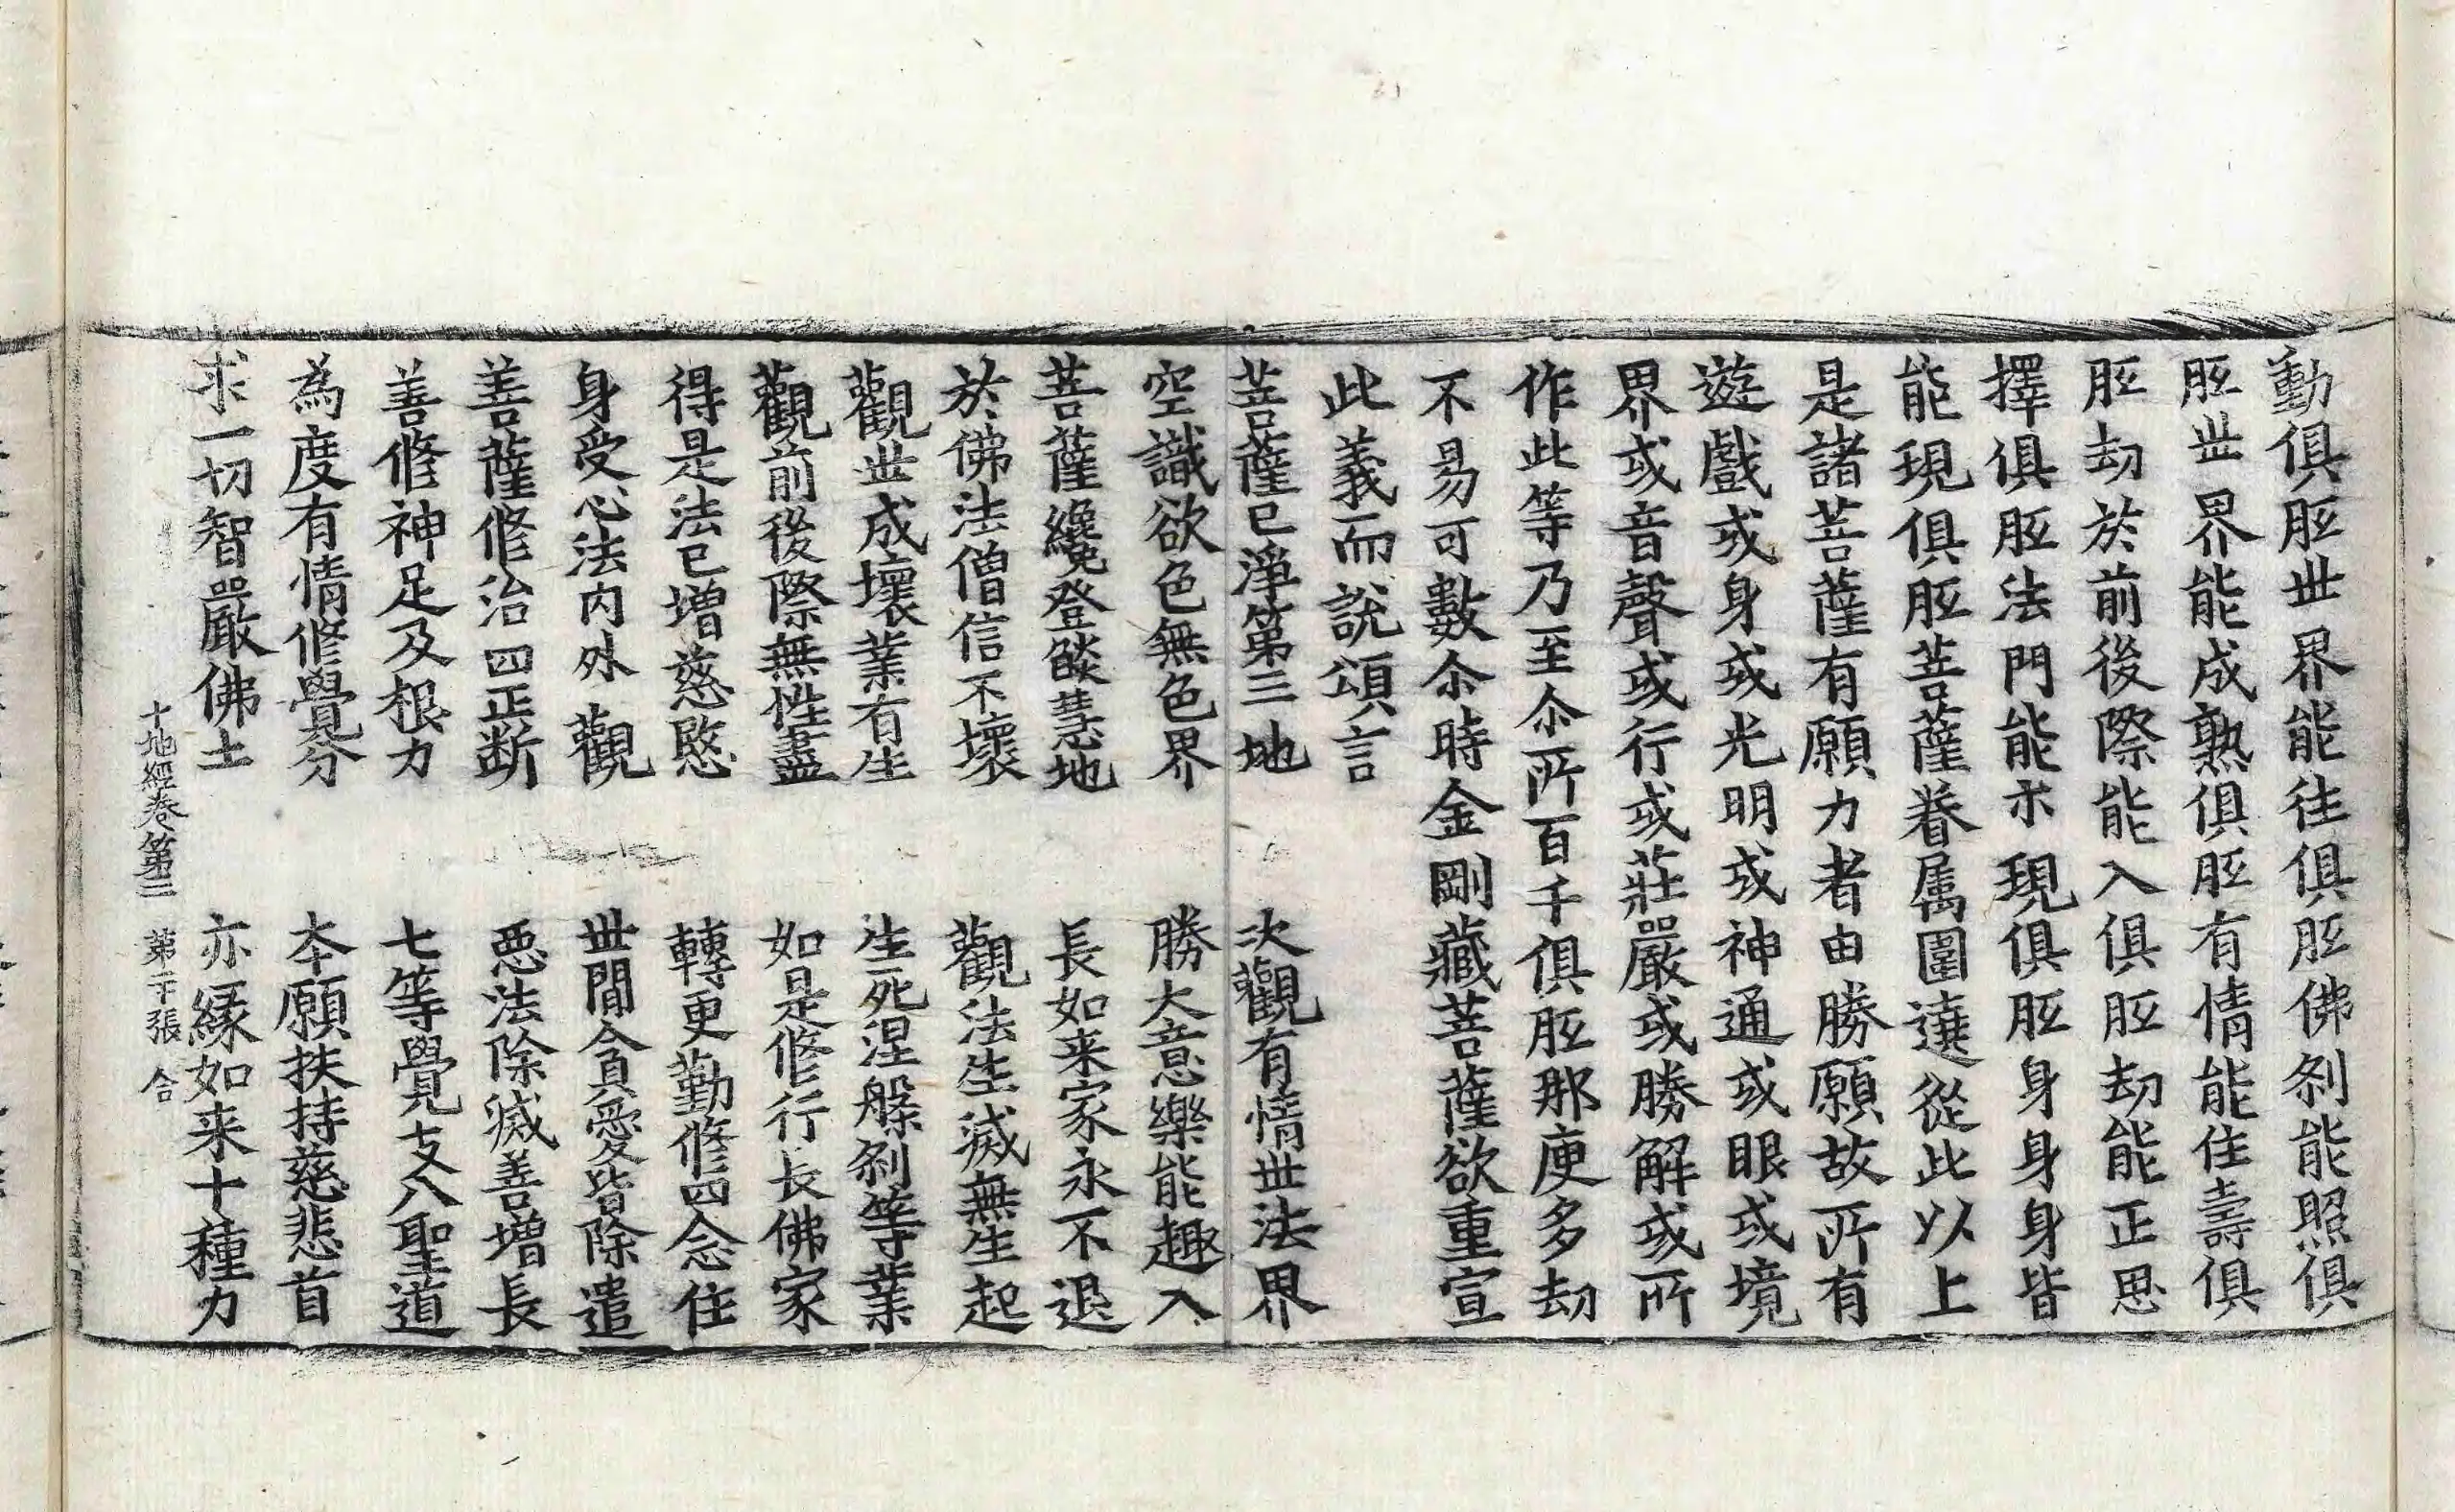 動俱胝世界能往俱胝佛剎能照俱
胝世界能成熟俱胝有情能住壽俱
胝劫於前後際能入俱胝劫能正思
擇俱胝法門能示現俱胝身身身皆
能現俱胝菩薩眷属圍遶從此以上
是諸菩薩有願力者由勝願故所有
遊戲或身或光明或神通或眼或境
界或音聲或行或莊嚴或勝解或所
作此等乃至尒所百千俱胝那庾多劫
不易可數尒時金剛藏菩薩欲重宣
此義而說頌言
菩薩已淨第三地　次觀有情世法界
空識欲色無色界　勝大意樂能趣入
菩薩纔登燄慧地　長如来家永不退
於佛法僧信不壞　觀法生滅無生起
觀世成壞業有生　生死涅槃剎等業
觀前後際無性盡　如是修行長佛家
得是法已增慈愍　轉更勤修四念住
身受心法內外觀　世間貪愛皆除遣
善薩修治四正断　惡法除滅善增長
善修神足及根力　七等覺支八聖道
為度有情修覺分　本願扶持慈悲首
求一切智嚴佛土　亦緣如来十種力
十地經卷第三　第二十張　合